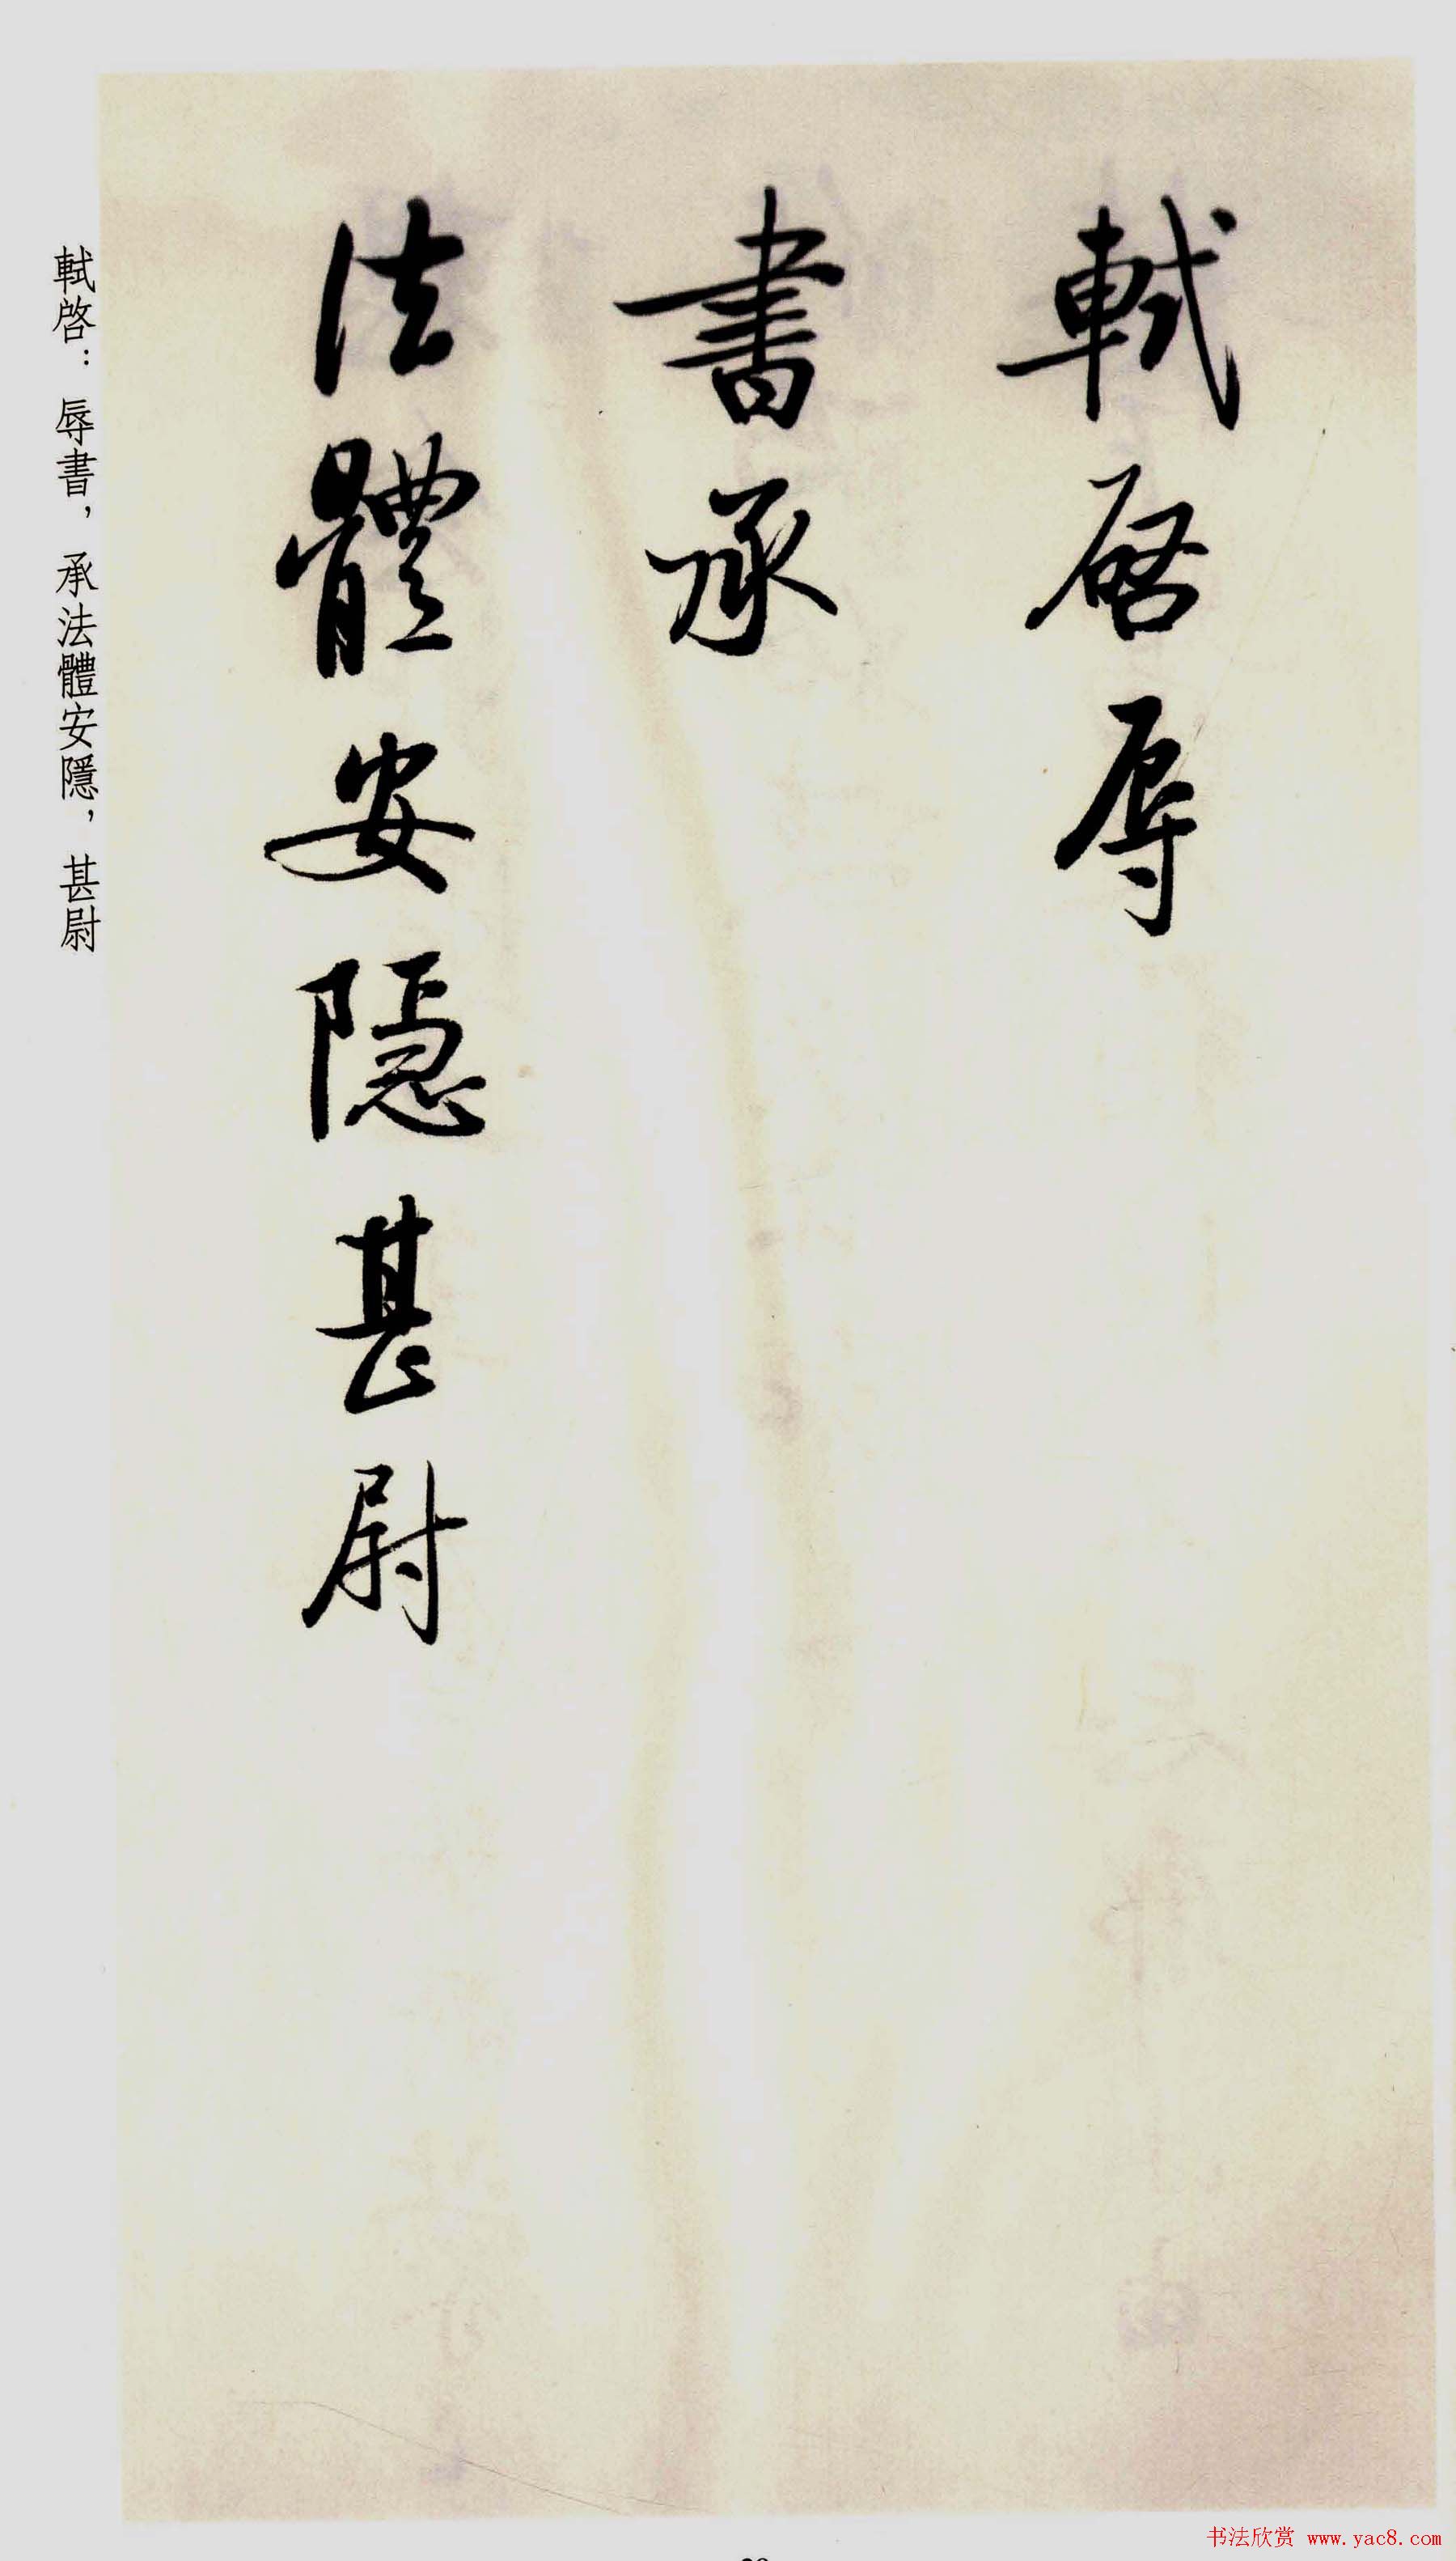 軾啓辱
書承
法體安隱甚尉
軾啓：辱書，承法體安隱，甚尉
书法欣赏 www.yac8.com